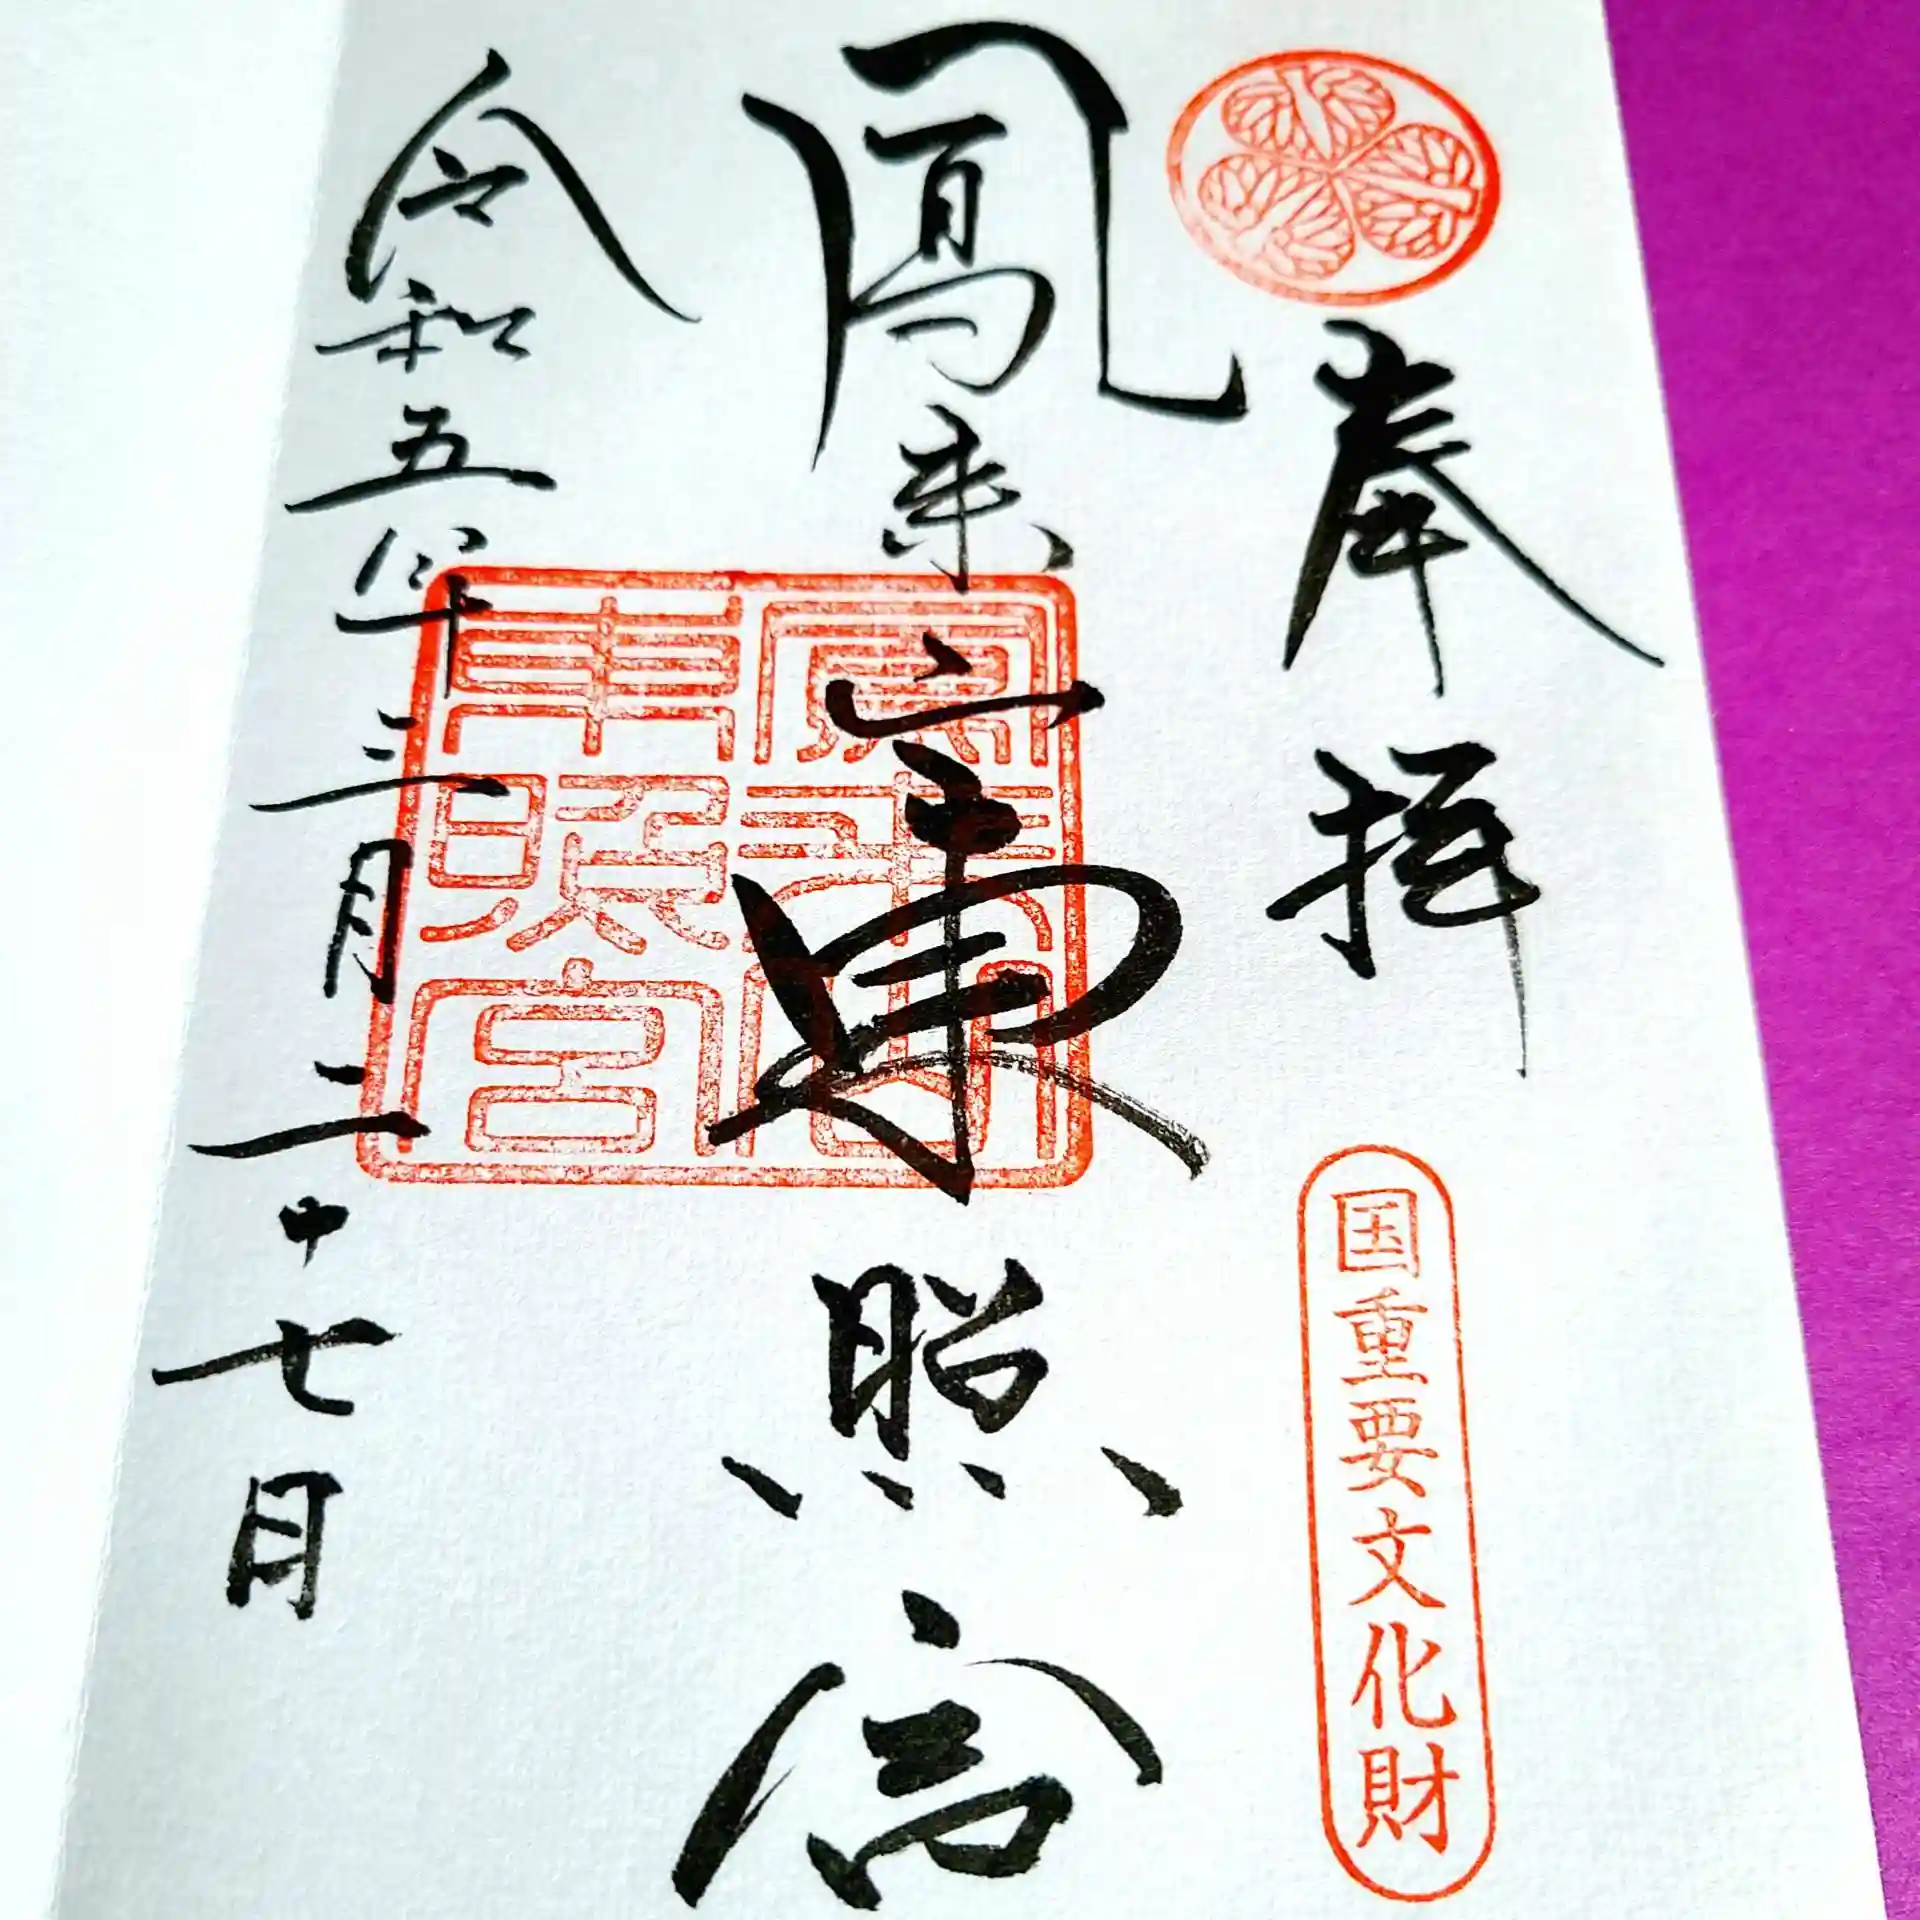 奉拝
国重要文化財
鳳来山東照宮
令和五年三月二十七日
鳳来山
東照宮